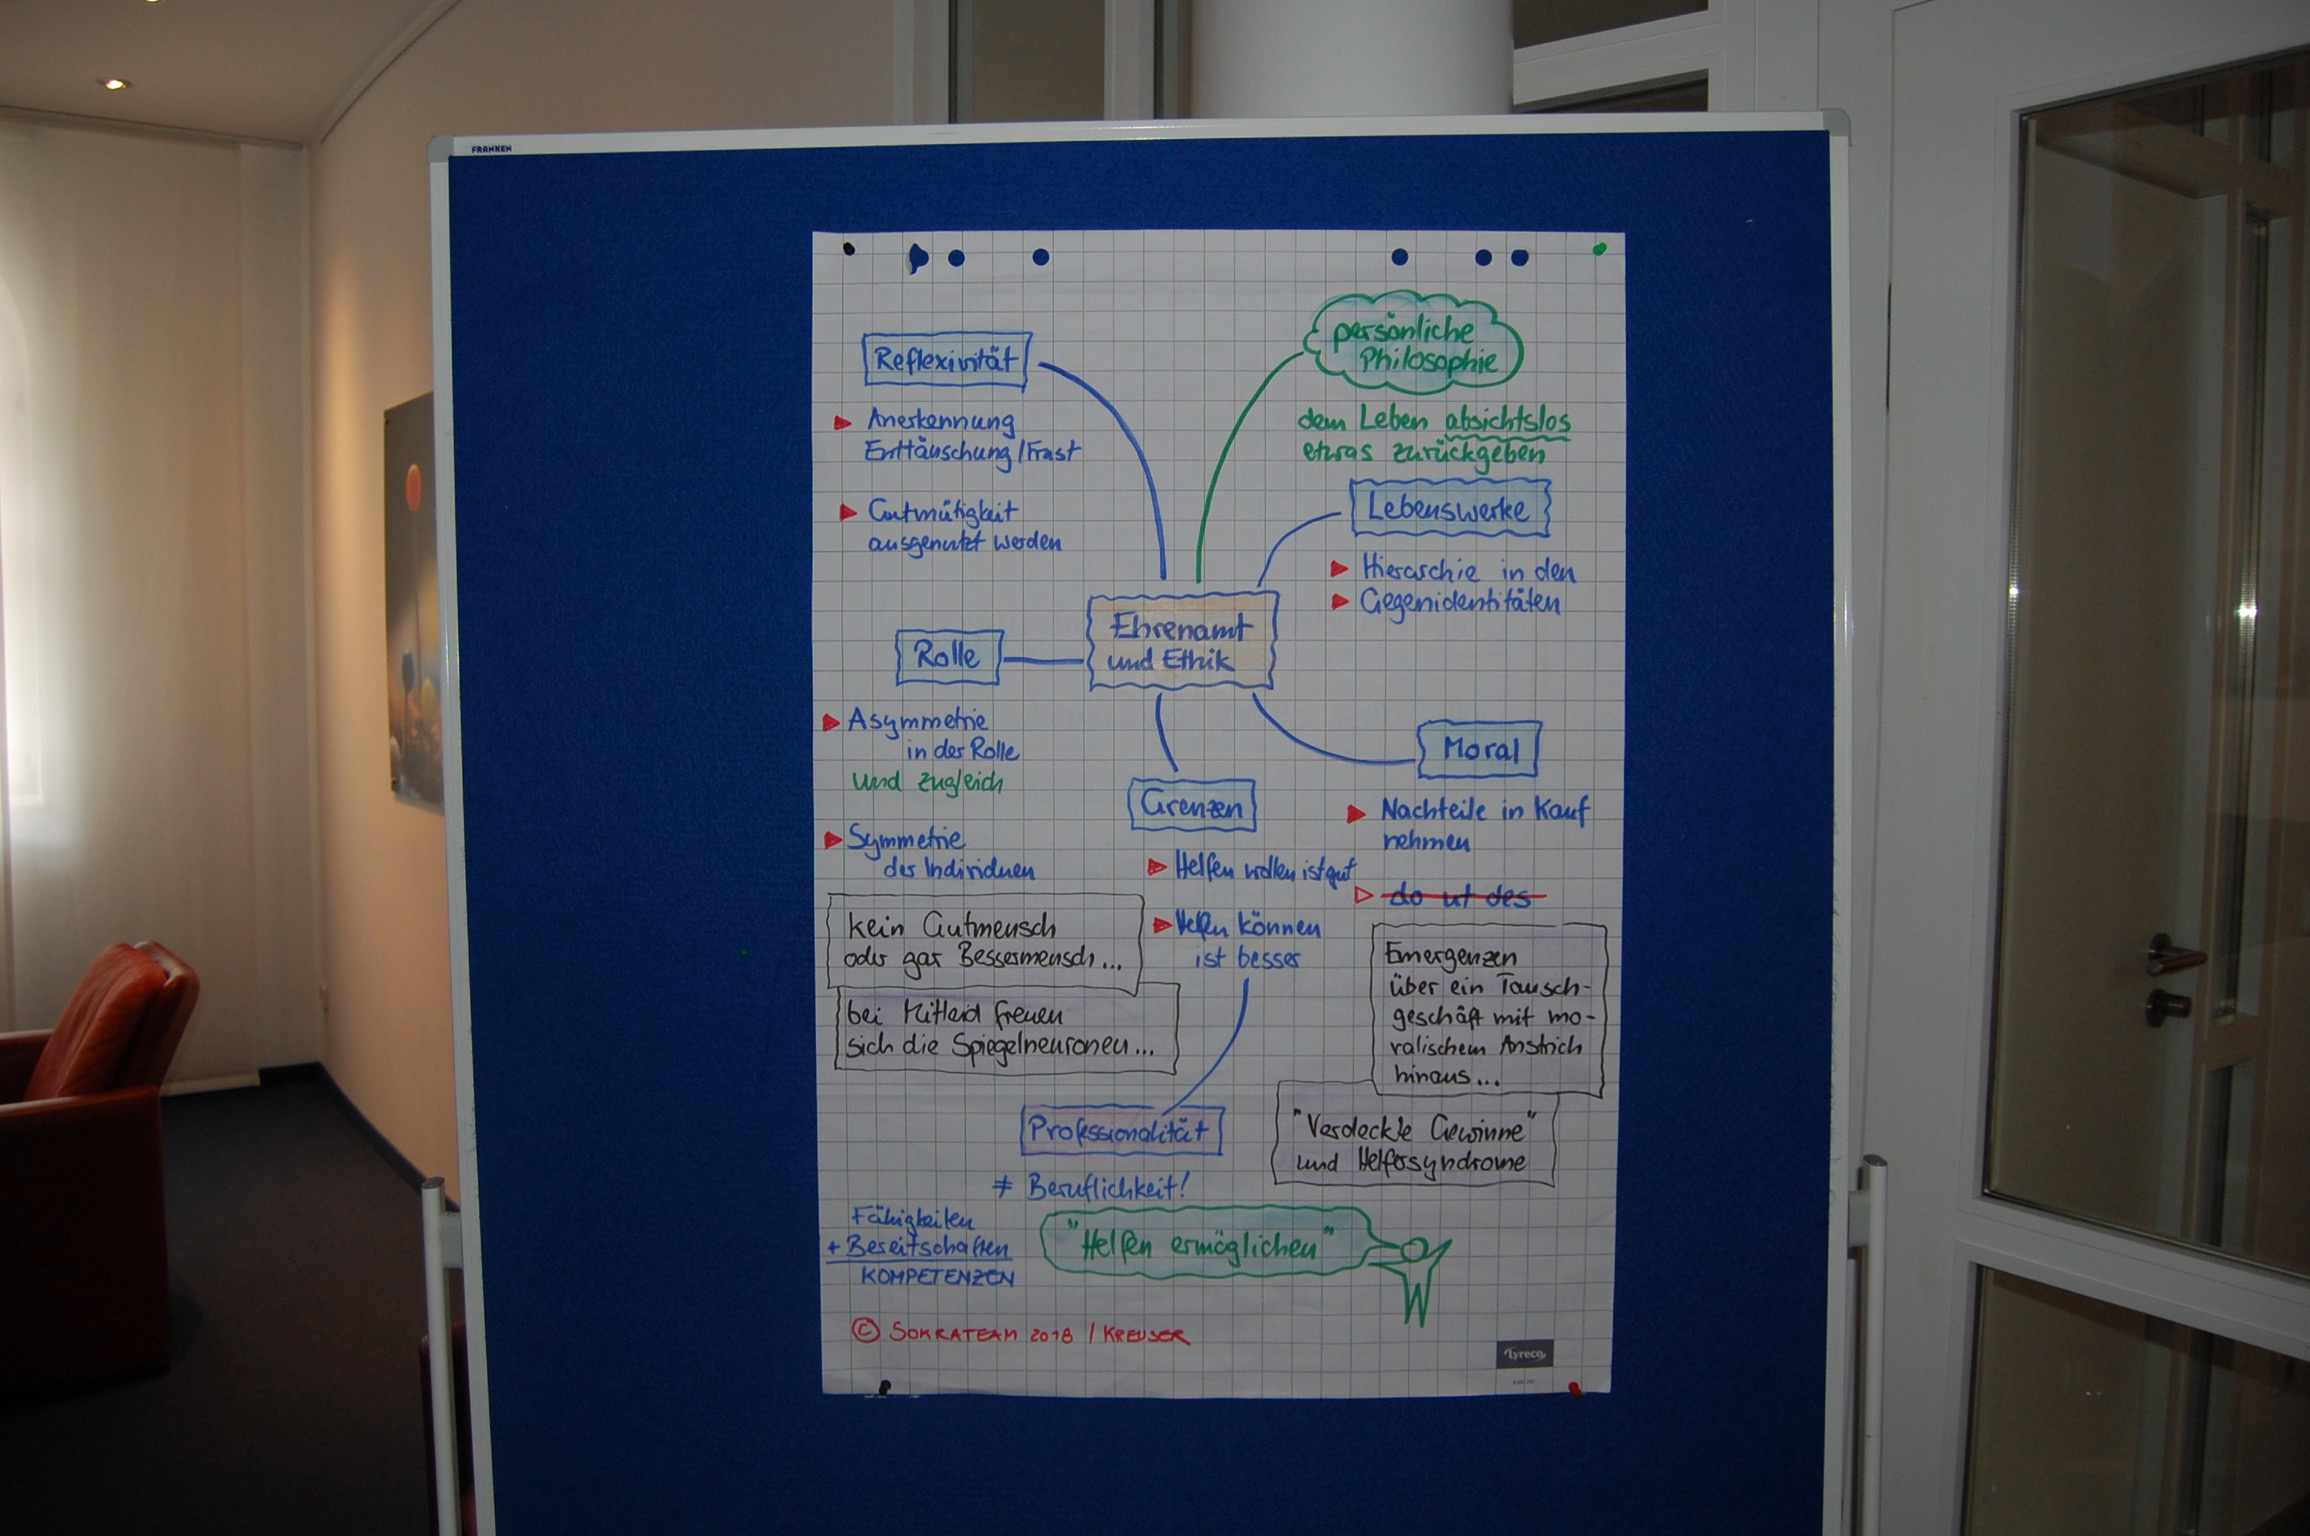 FRANKEN
Reflexivität
Anerkennung
Enttäuschung/Frust
Gutmütigkeit
ausgenutzt werden
persönliche
Philosophie
dem Leben absichtslos
etwas zurückgeben
Lebenswerke
Hierarchie in den
Gegenidentitäten
Ehrenamt
und Ethik
Rolle
Asymmetrie
in der Rolle
und zugleich
Symmetrie
der Individuen
kein Gutmensch
oder gar Bessermensch...
bei Mitleid freuen
sich die Spiegelneuronen...
Grenzen
Helfen wollen ist gut
Helfen können
ist besser
Moral
Nachteile in Kauf
nehmen
do ut des
Emergenzen
über ein Tausch-
geschäft mit mo-
ralischem Anstrich
hinaus...
"Verdeckte Gewinne"
und Helfersyndrome
Professionalität
≠ Beruflichkeit!
Fähigkeiten
+ Bereitschaften
KOMPETENZEN
"Helfen ermöglichen"
© SOKRATEAM 2018 / KREUSER
Lyreco